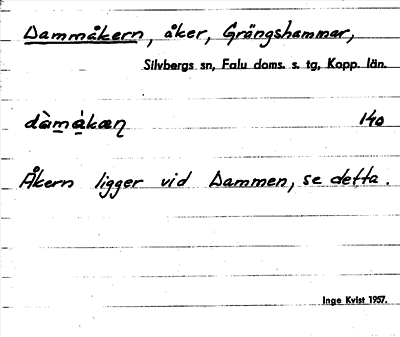 Dammåkern, åker, Grängshammar,
Silvbergs sn, Falu doms. s. tg, Kopp. län.
dàmåkæņ 140
Åkern ligger vid Dammen, se detta.
Inge Kvist 1957.